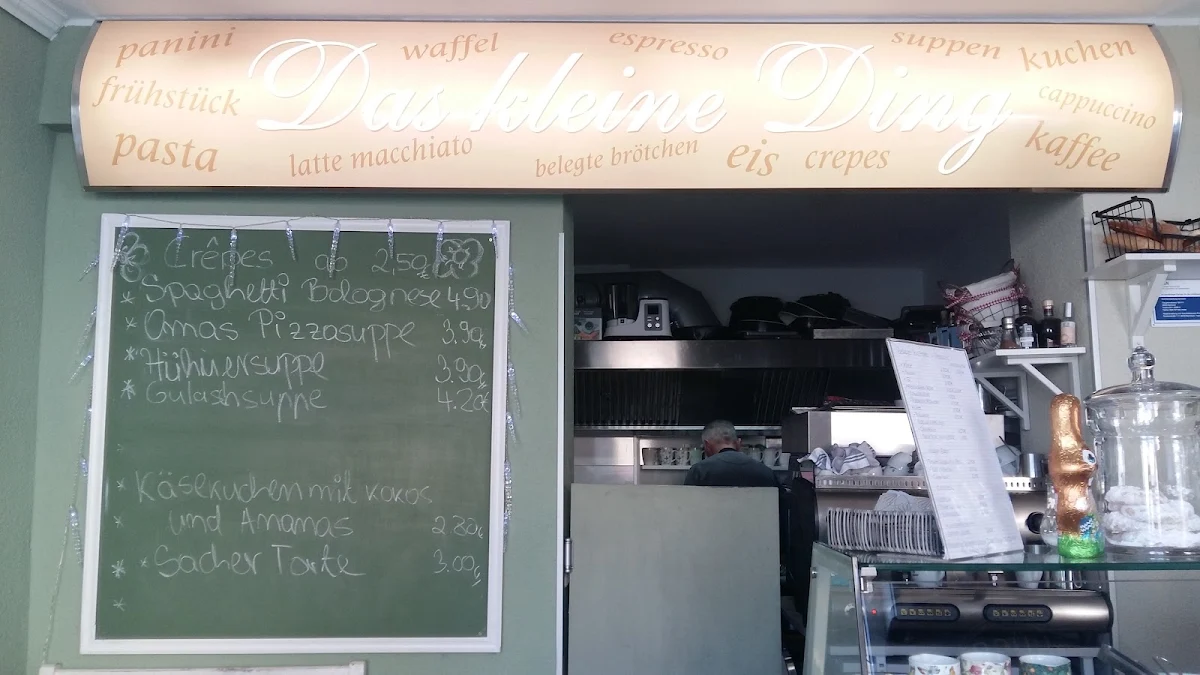 panini
waffel
espresso
suppen
kuchen
frühstück
Das kleine Ding
cappuccino
pasta
latte macchiato
belegte brötchen
eis
crepes
kaffee
Crêpes ab 2,50€
* Spaghetti Bolognese 4,90
* Omas Pizzasuppe 3.90€
* Hühnersuppe 3.90€
* Gulaschsuppe 4.20€
* Käsekuchen mit Kokos
* und Ananas 2.80€
* * Sacher Torte 3.00€